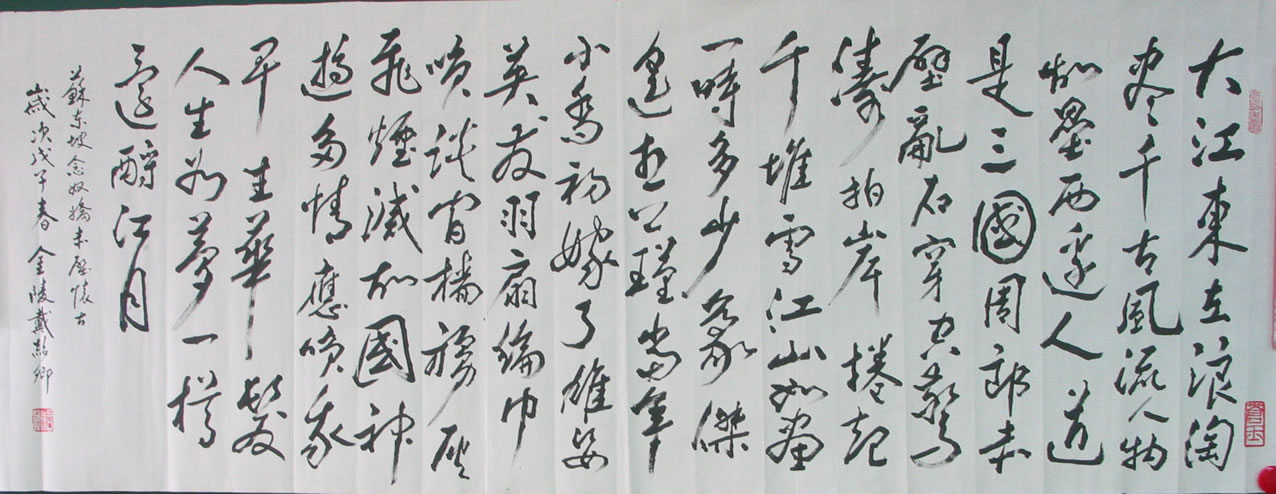 大江東去浪淘
尽千古風流人物
故壘西邊人道
是三國周郎赤
壁亂石穿空驚
濤拍岸捲起
千堆雪江山如畫
一時多少豪傑
遙想公瑾當年
小喬初嫁了雄姿
英发羽扇綸巾
笑談間檣櫓灰
飛煙滅故國神
遊多情應笑我
早生華髮
人生如夢一樽
還酹江月
蘇東坡念奴嬌赤壁懷古
歲次戊子春 金陵戴卿